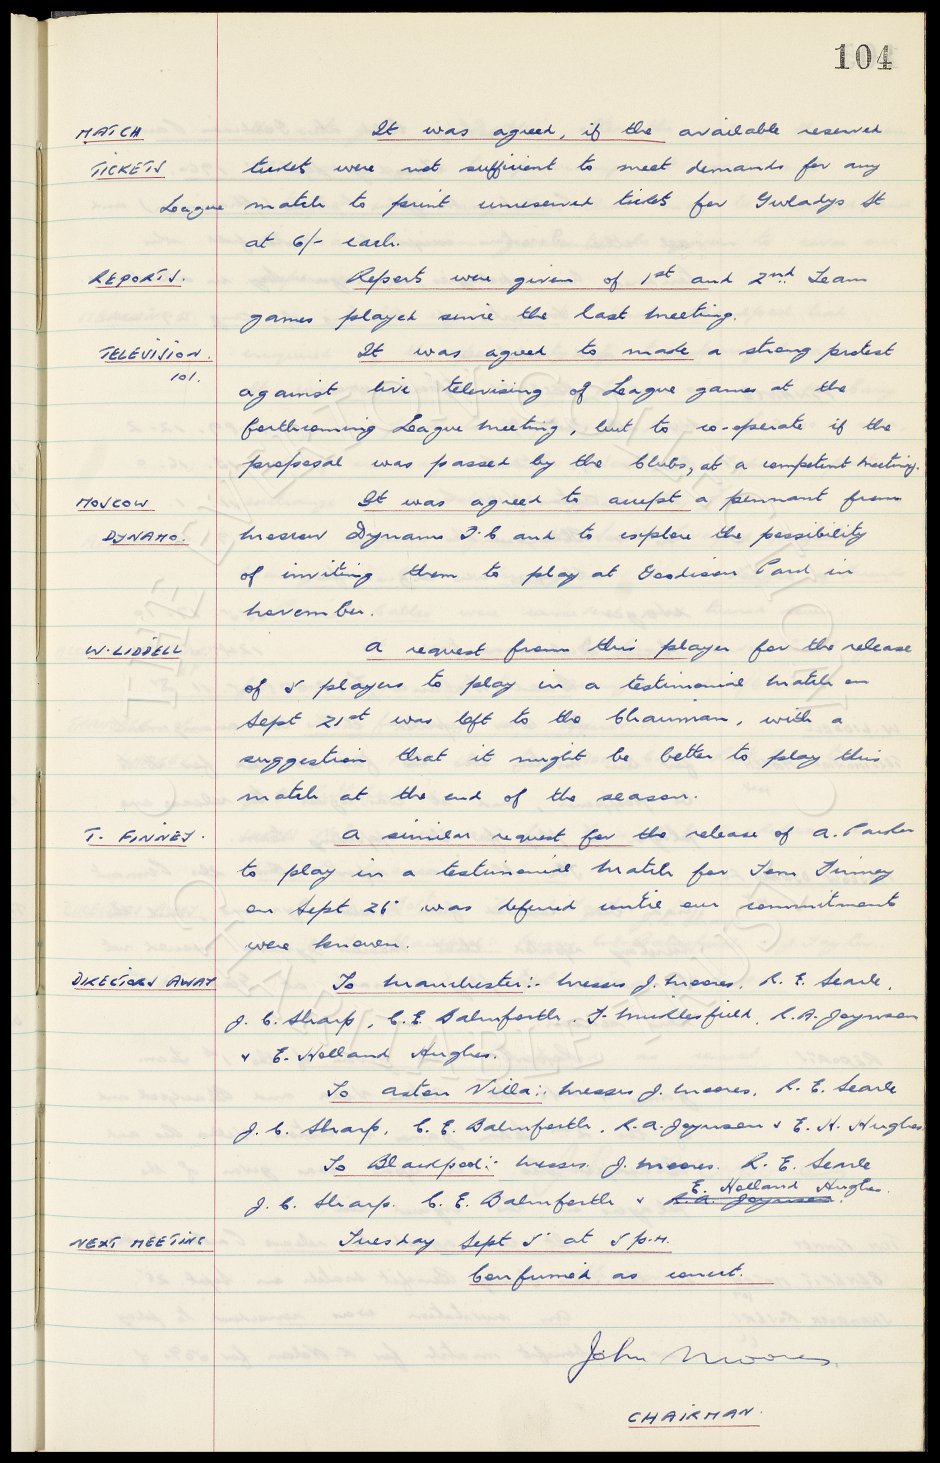 104
MATCH It was agreed, if the available reserved
TICKETS tickets were not sufficient to meet demands for any
League match to print unreserved tickets for Gwladys St
at 6/- each.
REPORTS. Reports were given of 1st and 2nd Team
games played since the last meeting.
TELEVISION. It was agreed to made a strong protest
101. against live televising of League games at the
forthcoming League meeting, but to co-operate if the
proposal was passed by the Clubs, at a competent meeting.
MOSCOW It was agreed to accept a pennant from
DYNAMO. Moscow Dynamo F.C and to explore the possibility
of inviting them to play at Goodison Park in
November.
W. LIDDELL A request from this player for the release
of 5 players to play in a testimonial match on
Sept 21st was left to the Chairman, with a
suggestion that it might be better to play this
match at the end of the season.
T. FINNEY. A similar request for the release of A. Parker
to play in a testimonial match for Tom Finney
on Sept 26 was deferred until our commitments
were known.
DIRECTORS AWAY To Manchester:- Messrs J. Moores, R. E. Searle,
J. C. Sharp, C. E. Balmforth, F. Micklesfield, R. A. Joynson
& E. Holland Hughes.
To Aston Villa:- Messrs J. Moores, R. E. Searle
J. C. Sharp, C. E. Balmforth, R. A. Joynson & E. H. Hughes
To Blackpool:- Messrs J. Moores. R. E. Searle
E. Holland Hughes.
J. C. Sharp. C. E. Balmforth & R. A. Joynson.
NEXT MEETING Tuesday Sept 5 at 5 p.m.
Confirmed as correct.
John Moores
CHAIRMAN.